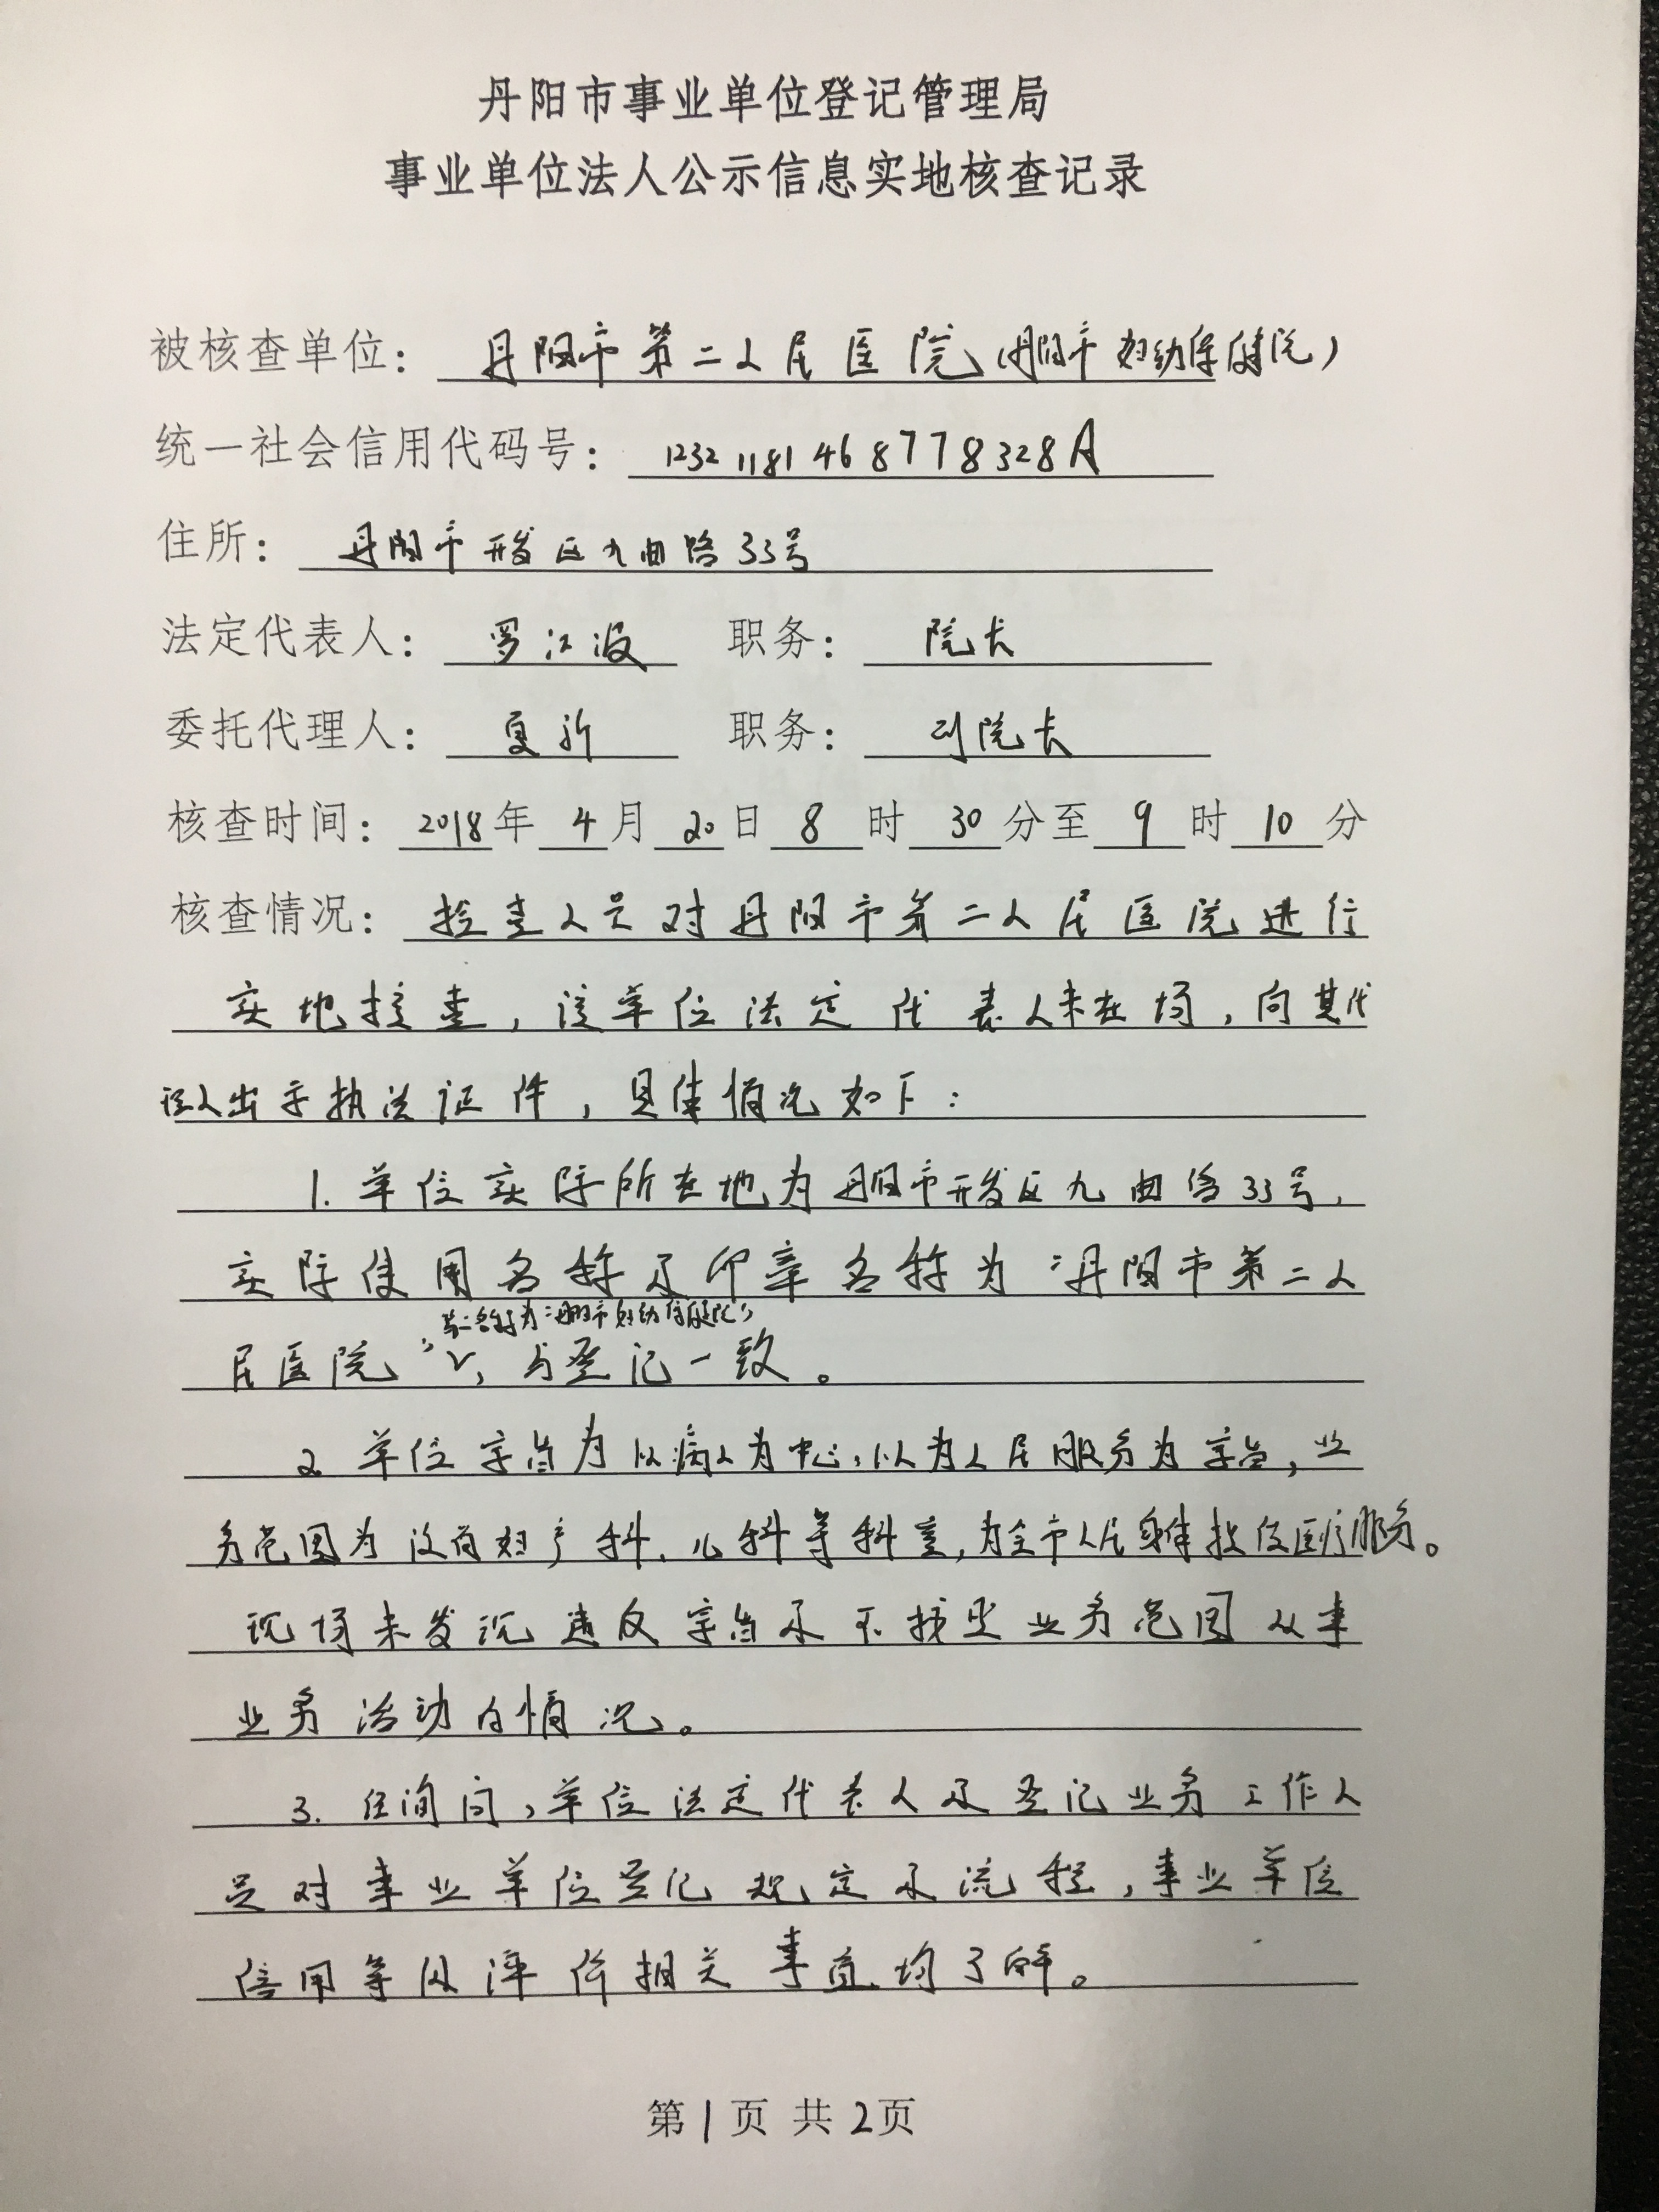 丹阳市事业单位登记管理局
事业单位法人公示信息实地核查记录
被核查单位：丹阳市第二人民医院（丹阳市妇幼保健院）
统一社会信用代码号：12321181468778328A
住所：丹阳市开发区九曲路33号
法定代表人：罗江波 职务：院长
委托代理人：夏新 职务：副院长
核查时间：2018年4月20日8时30分至9时10分
核查情况：检查人员对丹阳市第二人民医院进行
实地核查，该单位法定代表人未在场，向其代
理人出示执法证件，具体情况如下：
1.单位实际所在地为丹阳市开发区九曲路33号，
实际使用名称及印章名称为“丹阳市第二人
第二名称为“丹阳市妇幼保健院”
民医院”，与登记一致。
2.单位宗旨为以病人为中心，以为人民服务为宗旨，业
务范围为设有妇产科、儿科等科室，为全市人民身体提供医疗服务。
现场未发现违反宗旨及不按照业务范围从事
业务活动的情况。
3.经询问，单位法定代表人及登记业务工作人
员对事业单位登记规定及流程，事业单位
信用等级评价相关事宜均了解。
第1页 共2页